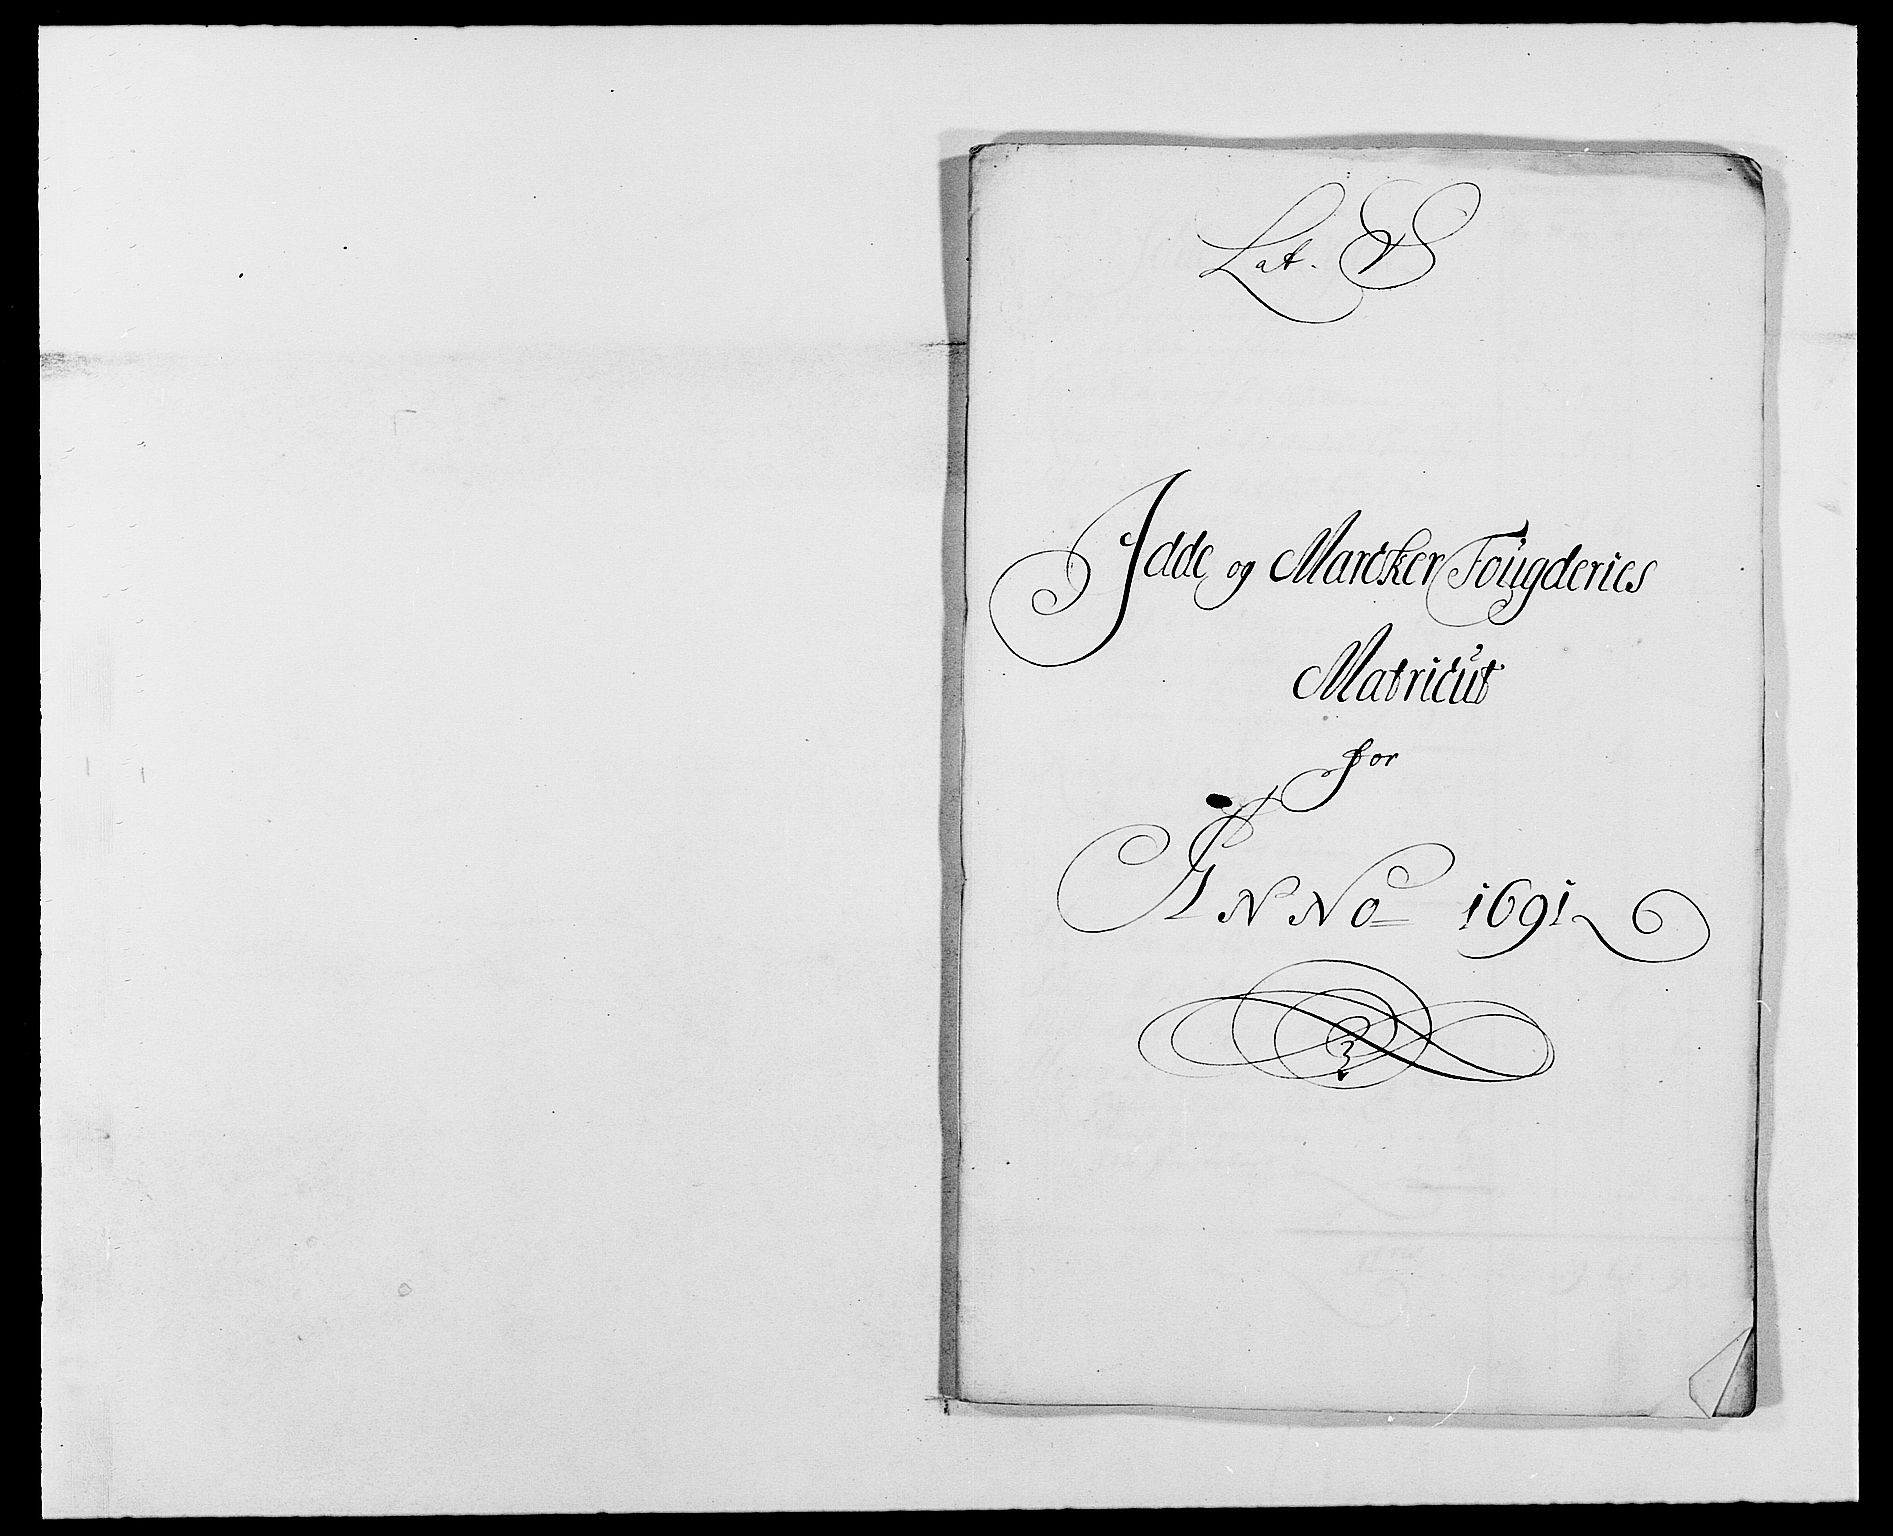 Lat. S
Idde og Marcker Fougderies
Matricul
for
ANNO 1691